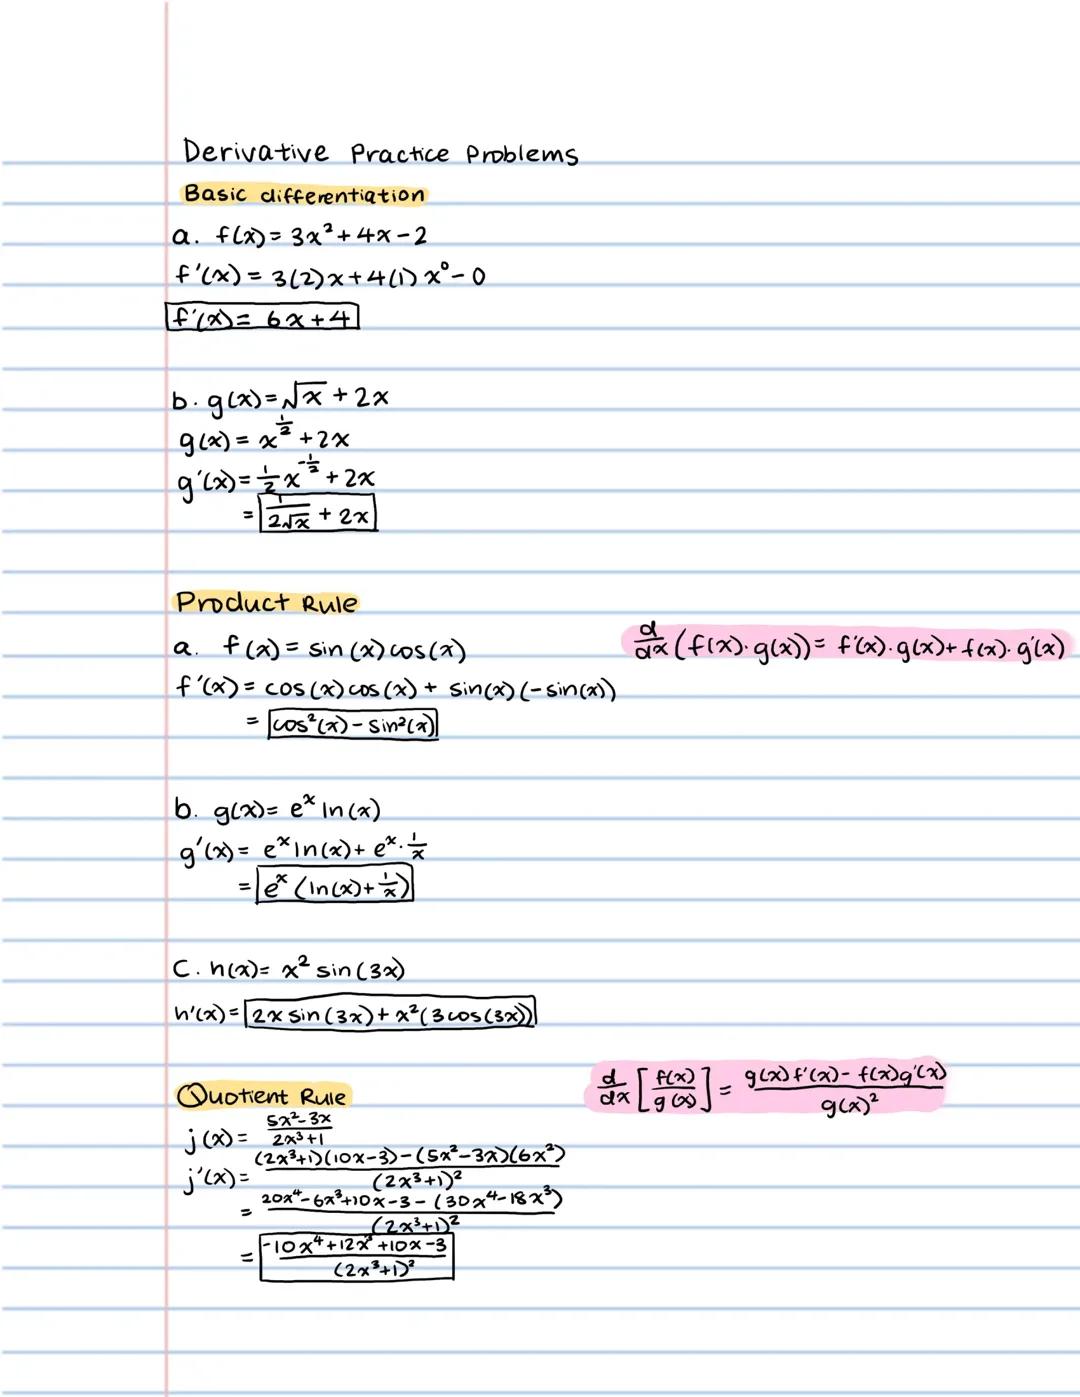 Derivative Practice Problems
Basic differentiation
a. f(x) = 3x² + 4x - 2
f'(x) = 3(2)x + 4(1)x⁰ - 0
f'(x) = 6x + 4
b. g(x) = √x + 2x
g(x) = x^(1/2) + 2x
g'(x) = 1/2 x^(-1/2) + 2x
= 1/(2√x) + 2x
Product Rule
d/dx (f(x)·g(x)) = f'(x)·g(x) + f(x)·g'(x)
a. f(x) = sin(x)cos(x)
f'(x) = cos(x)cos(x) + sin(x)(-sin(x))
= cos²(x) - sin²(x)
b. g(x) = eˣ ln(x)
g'(x) = eˣ ln(x) + eˣ · 1/x
= eˣ (ln(x) + 1/x)
C. h(x) = x² sin(3x)
h'(x) = 2x sin(3x) + x²(3cos(3x))
Quotient Rule
d/dx [f(x)/g(x)] = (g(x)f'(x) - f(x)g'(x))/g(x)²
j(x) = (5x²-3x)/(2x³+1)
j'(x) = ((2x³+1)(10x-3)-(5x²-3x)(6x²))/(2x³+1)²
= (20x⁴-6x³+10x-3-(30x⁴-18x³))/(2x³+1)²
= (-10x⁴+12x³+10x-3)/(2x³+1)²